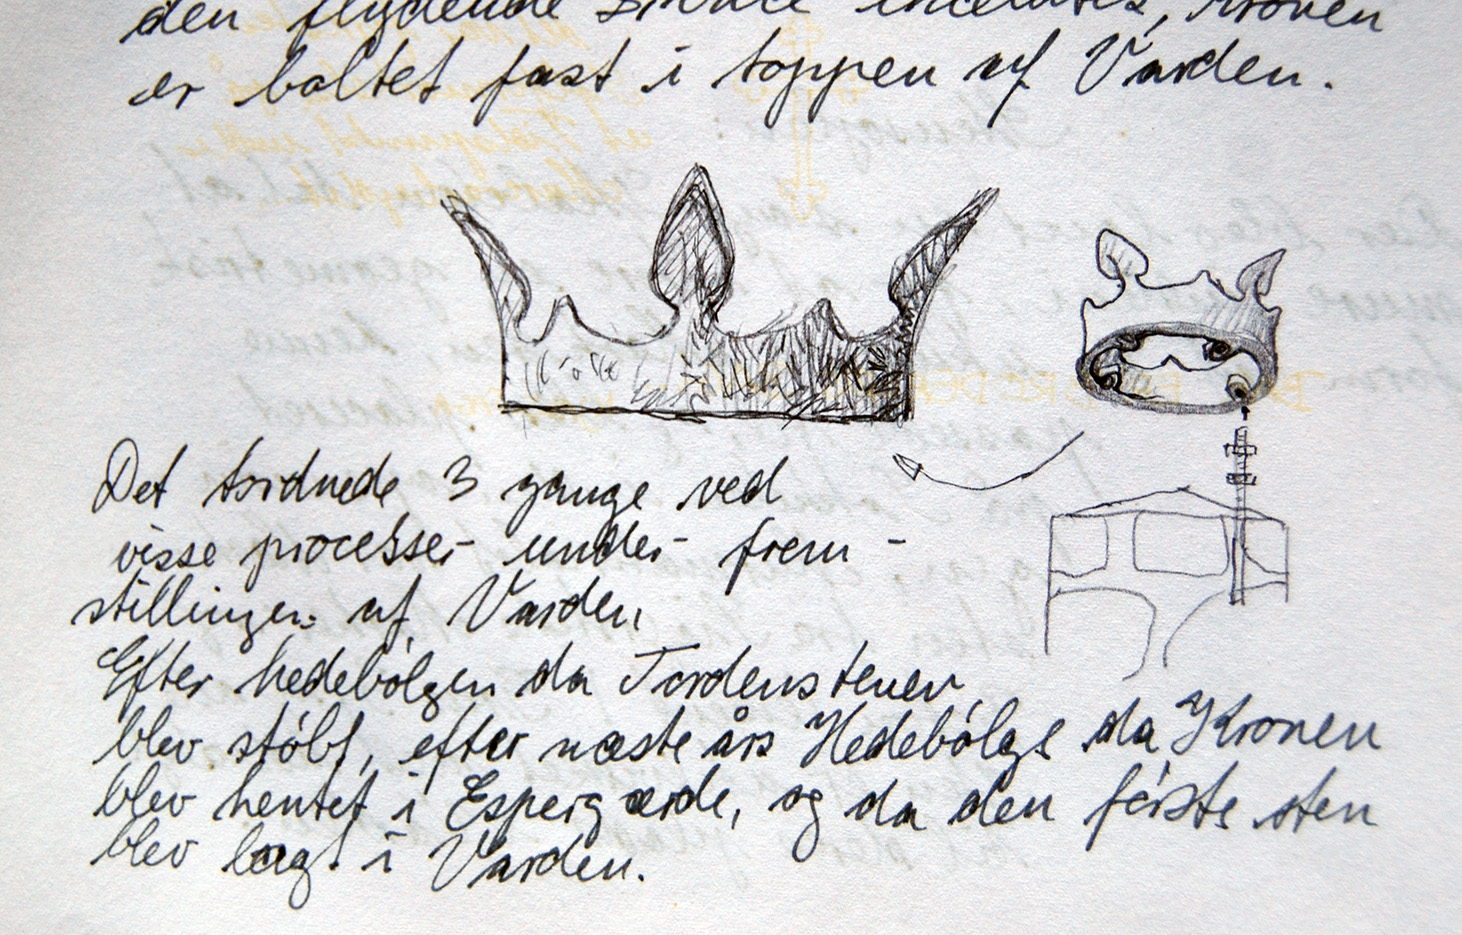 den flydende
er boltet fast i toppen af Varden.
Det tordnede 3 gange ved
visse processer under frem-
stillingen af Varden
Efter hedebølgen da Tordenstenen
blev støbt, efter næste års Hedebølge da Kronen
blev hentet i Espergærde, og da den første sten
blev lagt i Varden.